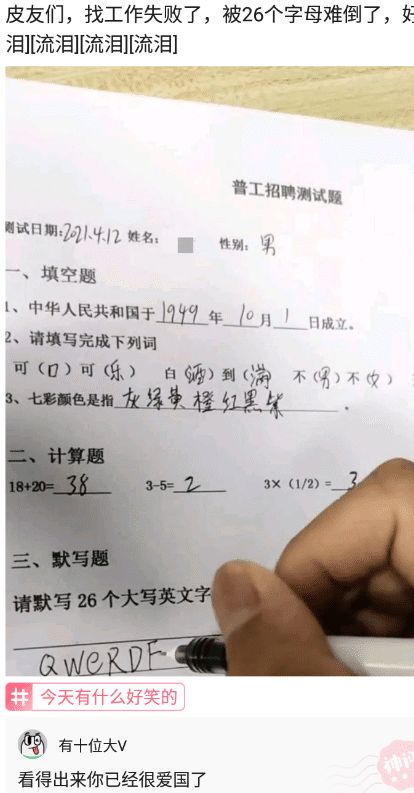 皮友们，找工作失败了，被26个字母难倒了，好
泪][流泪][流泪][流泪]
普工招聘测试题
测试日期:2021.4.12 姓名: 性别: 男
一、填空题
1、中华人民共和国于1949年10月1日成立。
2、请填写完成下列词
可（口）可（乐） 白（酒）到（满） 不（男）不（女）
3、七彩颜色是指灰绿黄橙红黑紫。
二、计算题
18+20=38 3-5=2 3×（1/2）=3
三、默写题
请默写26个大写英文字
QWeRDF
# 今天有什么好笑的
有十位大V
看得出来你已经很爱国了
神评